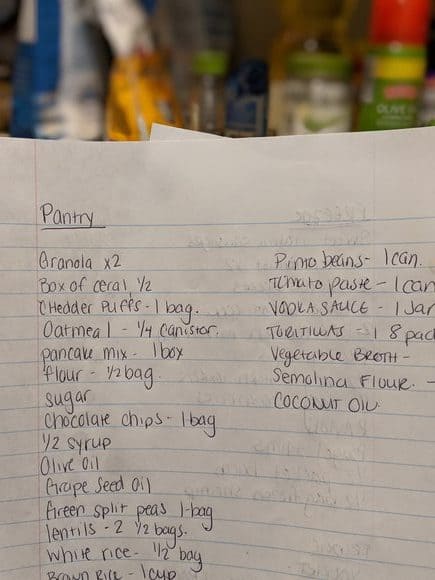 OLIVE
Pantry
Granola x2
Box of ceral, 1/2
Chedder Puffs - 1 bag.
Oatmeal - 1/4 Canistor.
pancake mix - 1 box
flour - 1/2 bag.
sugar
Chocolate chips - 1 bag
1/2 syrup
Olive oil
Grape Seed Oil
Green split peas 1-bag
lentils - 2 1/2 bags.
white rice - 1/2 bag
Brown Rice - 1 cup
Pinto beans - 1 can.
Tomato paste - 1 can
VODKA SAUCE - 1 Jar
TORTILLAS - 1 8 pac
Vegetable BROTH -
Semolina FLOUR. -
COCONUT OIL.